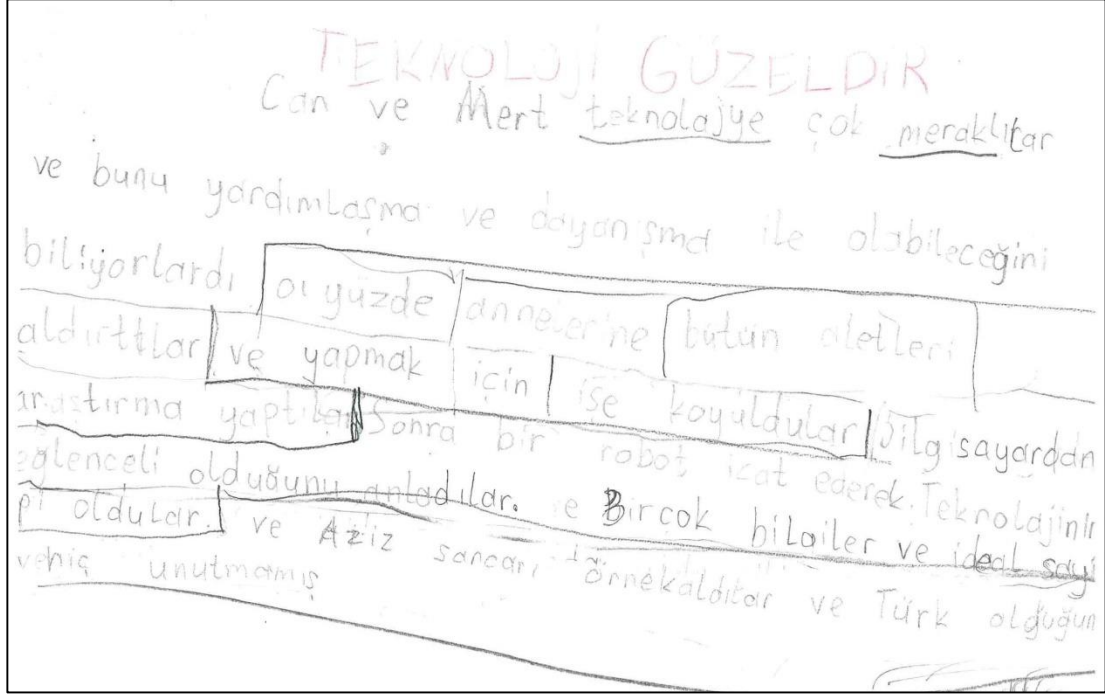 TEKNOLOJİ GÜZELDİR
Can ve Mert teknolajye çok meraklıtar
ve bunu yardımlaşma ve dayanışma ile olabileceğini
biliyorlardı oıyüzde annelerine bütün aletleri
aldırttılar ve yapmak için işe koyuldular Bilgisayardan
araştırma yaptılar Sonra bir robot icat ederek. Teknolajinin
eğlenceli olduğunu anladılar. Birçok bilgiler ve ideal sayi
pi oldular. ve Aziz sancarı örnekaldılar ve Türk olduğun
vehiç unutmamış